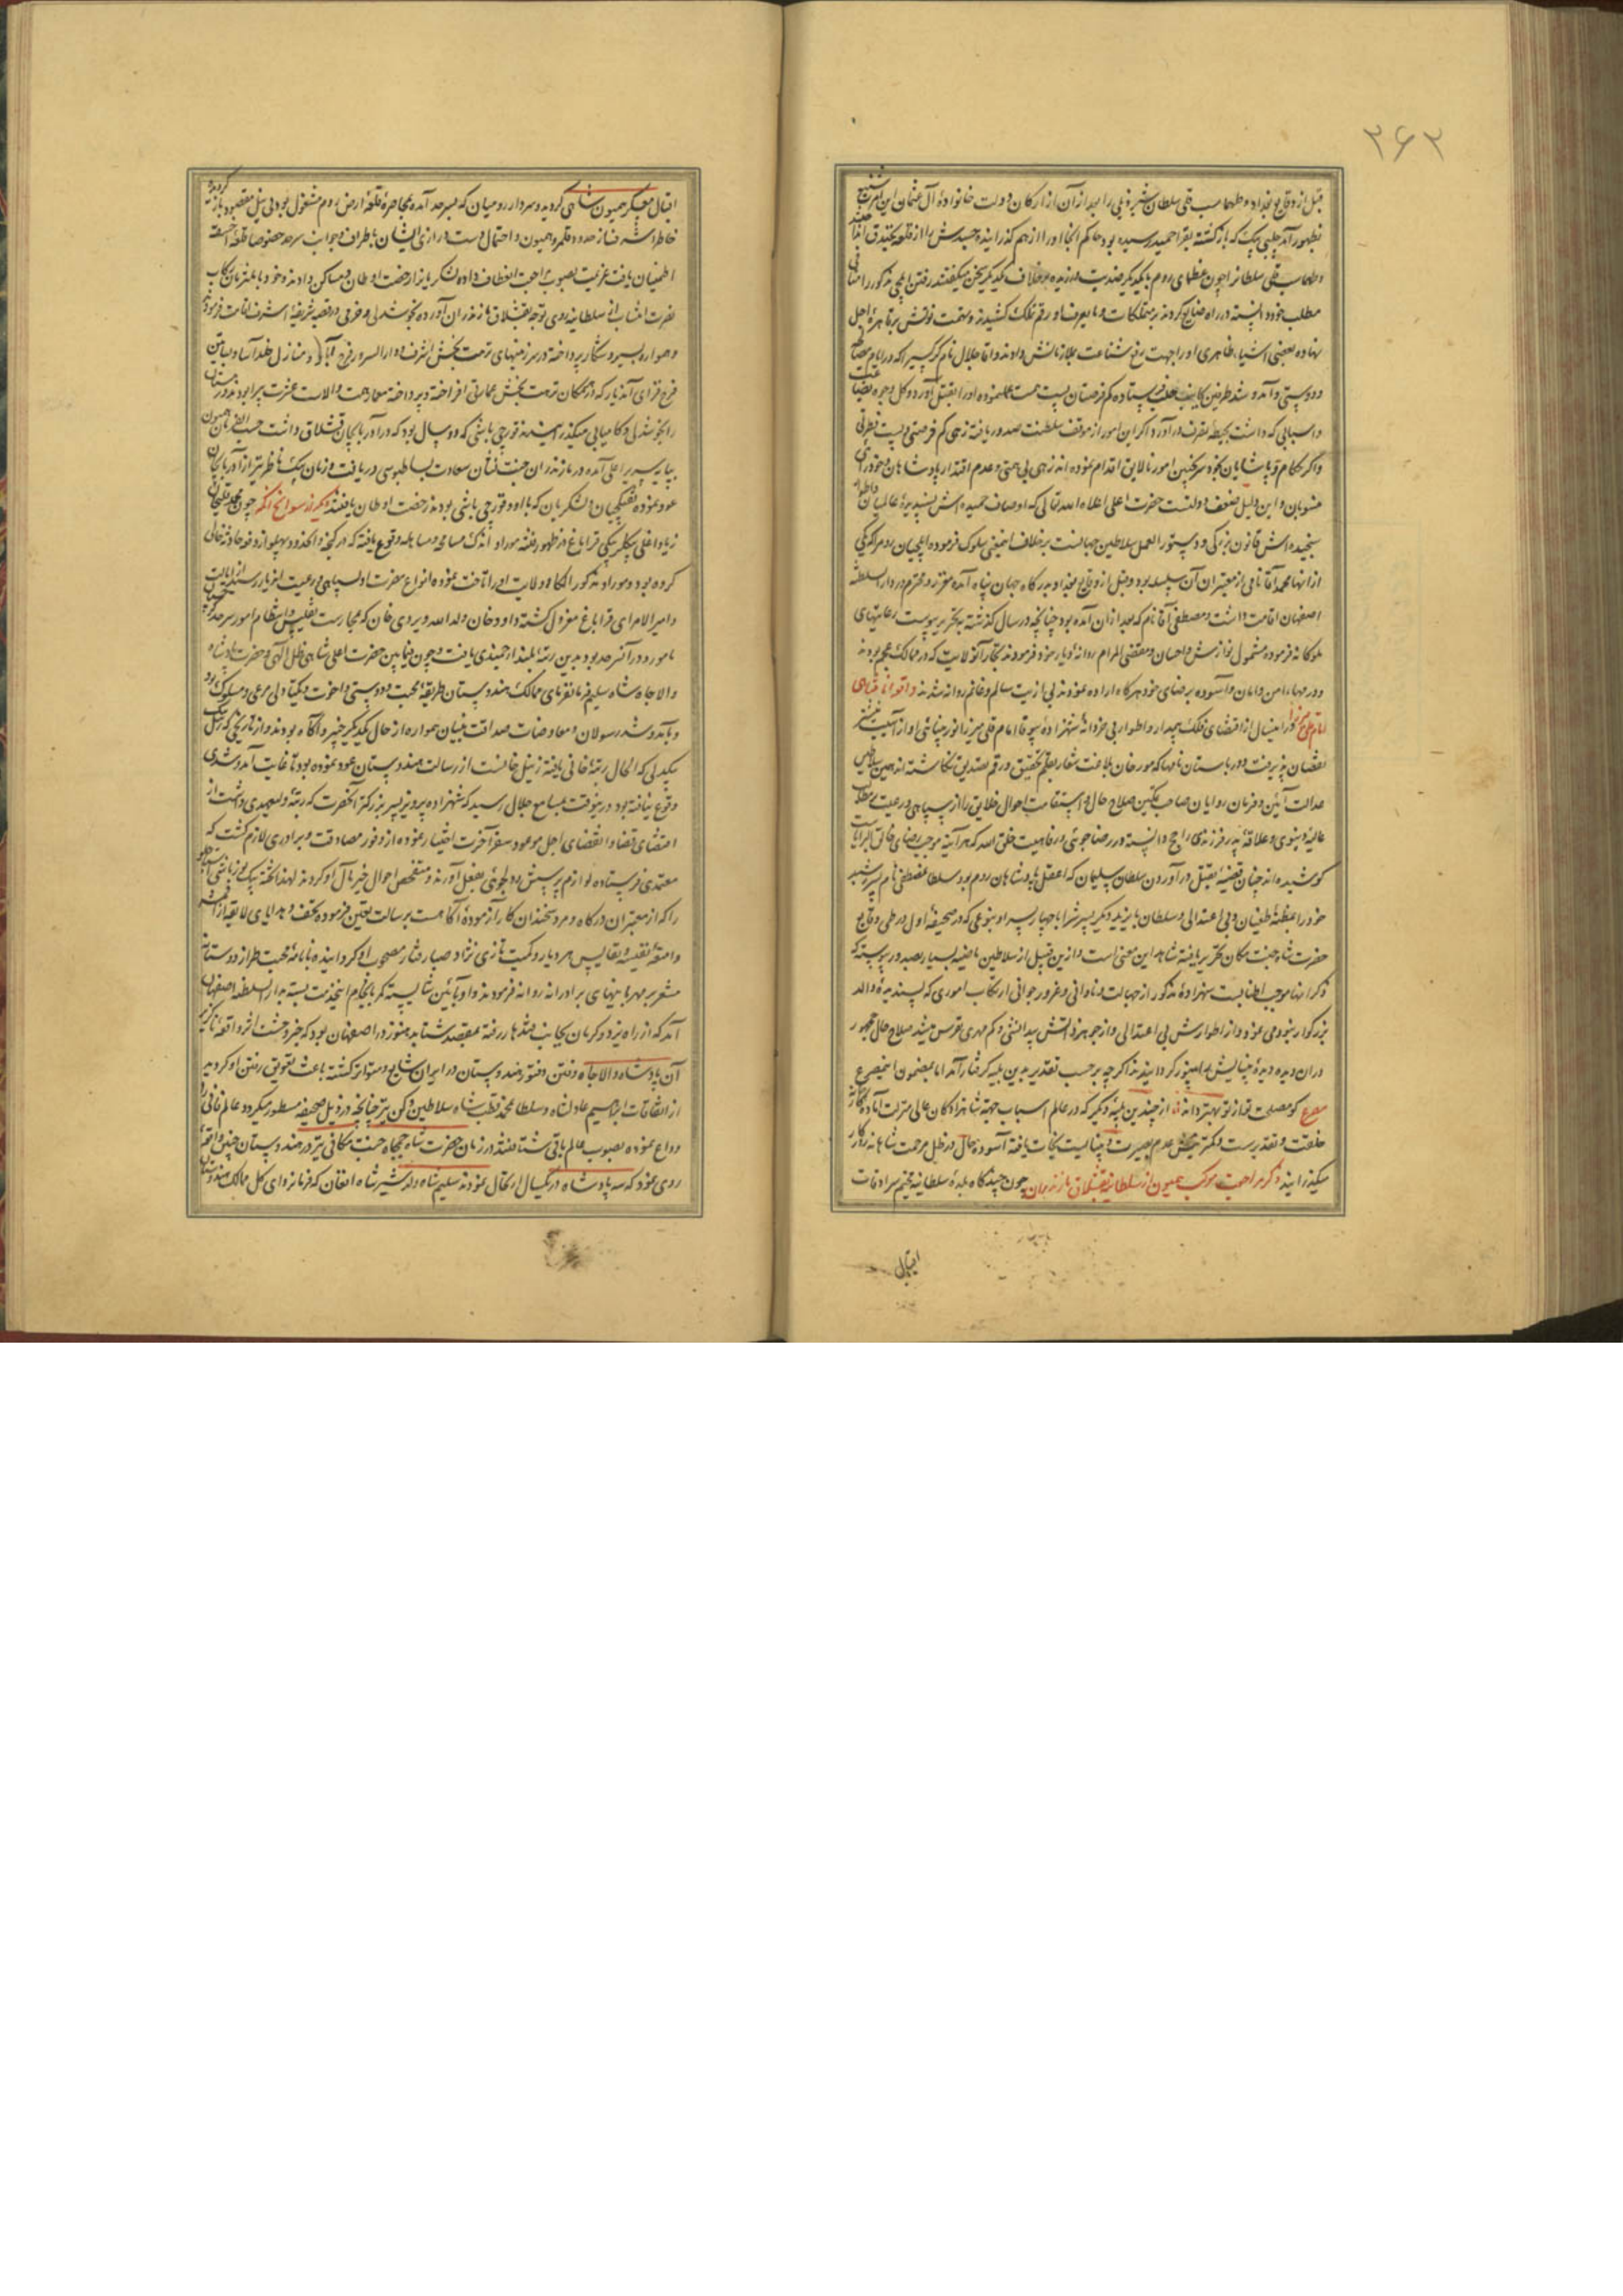 ۲۶۲
قبل از وقایع بغداد و طهماسب قلی سلطان شیره‌چی را بعد از آن از ارکان دولت خانواده آل عثمان این
بظهور آمد چلبی بیک که بازگشته بقرا حمید رسیده بود حاکم آنجا او را از هم گذرانیده جسدش را از قلعه بخندق
و طهماسب قلی سلطان را چون عظمای روم با یکدیگر ضدیت ورزیده برخلاف یکدیگر سخن میگفتند رفتن ایلچی مذکور را
مطلب خود دانسته در راه ضایع کردند و بتملکات و مایعرف او رقم تملک کشیدند و تهمت فوتش بر قاهره اجل
نهاده بعضی اشیاء ظاهری او را جهت رفع شناعت بملازمانش دادند و آقا جلال نام گرکیراق که در ایام
و دوستی و آمد و شد طرفین بجانب حلب فرستاده کم فرصتان پست همت عمل نموده او را بقتل آورد و کل وجوه
و اسبابی که داشت بحیطه تصرف درآورد اگر این امور از موقف سلطنت صدور یافته زهی کم فرصتی و پست فطرتی
و اگر حکام و پاشایان بخودسر چنین امور نالایق اقدام نموده اند زهی بی حمیتی و عدم اقتدار پادشاهان
منسوبان و این دلیل ضعف دولتست حضرت اعلی اعلاه الله تعالی که اوصاف حمیده اش پسندیده عالمیان
سنجیده اش قانون بزرگی و دستور العمل سلاطین جهانست برخلاف اینمعنی سلوک فرموده ایلچیان روم را که یکی
از آنها محمد آقا نامی از معتبران آن سلسله بود و قبل از وقایع بغداد بدرگاه جهان پناه آمده معزز و محترم در دار السلطنه
اصفهان اقامت داشت و مصطفی آقا نام که بعد از آن آمده بود چنانچه در سال گذشته بتحریر پیوست رعایتهای
ملوکانه فرموده مشمول نوازش و احسان و مقضی المرام روانه دیار خود فرمودند تجار آنولایت که در ممالک عجم بودند
در مهاد امن و امان و آسوده برضای خود هرگاه اراده نمودند بی اذیت سالم و غانم روانه شدند
امام قلی میرزا در اینسال از اقتضای فلک بیمدار و اطوار بی خردانه شهزاده امام قلی میرزا نور چشمی او از آسیب
نقصان پذیرفت و در باستان نامها که مورخان بلاغت شعار بقلم تحقیق رقم تصدیق نگاشته اند همین سلاطین
عدالت آئین و فرمان روایان صاحب تمکین صلاح حال و استقامت احوال خلایق را از سپاهی و رعیت بر مطلب
عالیه دنیوی و علاقه پدر فرزندی راجح دانسته در رضاجوئی و رفاهیت خلق الله که هرآینه موجب رضای خالق البرایاست
کوشیده اند چنان قضیه بقتل درآوردن سلطان سلیمان که اعقل پادشاهان روم بود سلطان مصطفی نام پسر رشید
خود را بمظنه طغیان و بی اعتدالی و سلطان بایزید دیگر پسرش را با چهار پسر او بنوعی که در صحیفه اول در طی وقایع
حضرت شاه جنت مکان تحریر یافته شاهد این معنی است و ازین قبیل از سلاطین ماضیه بسیار بصدور پیوسته که
ذکر آنها موجب اطنابست شهزاده مذکور از جهالت و نادانی و غرور جوانی ارتکاب اموری که پسندیده والد
بزرگوار نبود می نمود و از اطوارش بی اعتدالی و از جوهر ذاتش بیدانشی و کم مهری تفرس میشد صلاح حال جمهور
در آن دیده دیده بینایش را بی نور گردانیدند اگر چه بر حسب تقدیر بدین بلیه گرفتار آمد اما بمضمون این مصرع
مصرع کو مصلحت تو از تو بهتر داند از چندین بلیه دیگر که در عالم اسباب جهة شاهزادگان عالی منزلت آماده
خلقت و تقدیر است و کمترینش عدم بصیرت و بینائیست نجات یافته آسوده حال در ظل مرحمت شاهانه روزگار
میگذرانید ذکر مراجعت موکب همیون از سلطانیه بقشلاق مازندران چون چندگاه بلده سلطانیه مخیم سرادقات
اقبال
اقبال معسکر همیون شاهی گردید و سردار رومیان که بسرحد آمده بمحاصره قلعه ارض روم مشغول بود بی نیل مقصود
خاطر اشرف از حدود قلمرو همیون و احتمال دست درازی ایشان باطراف و جوانب سرحد خصوصا قلعه
اطمینان یافت عزیمت بصوب مراجعت انعطاف داده لشکریان را رخصت اوطان و مساکن دادند و خود با ملتزمان رکاب
نصرت انتساب از سلطانیه روی توجه بقشلاق مازندران آورده بخوشدلی و خرمی در قصبه شریفه اشرف اقامت فرمودند
و همواره بسیر و شکار پرداخته در سرزمینهای نزهت بخش اشرف و دار السرور فرح آباد و منازل خلد آسا و بساتین
فرح فزای آندیار که در هر مکان نزهت بخش عمارتی افراخته و پرداخته معمار همت والاست عشرت پیرا بودند
را بخوشدلی و کامیابی میگذرانیدند قورچی باشی که دو سال بود که در آذربایجان قشلاق داشت حسب الفرمان همیون
بپایه سریر اعلی آمده در مازندران جنت نشان سعادت بساطبوسی دریافت و زمان بیک ناظر نیز از آذربایجان
عود نموده تفنگچیان و لشکریان که با او و قورچی باشی بودند رخصت اوطان یافتند دیگر از سوانح آنکه چون محمد قلیخان
زیاد اغلی بیگلربیگی قراباغ در ظهور فتنه موراو اندک مسامحه و مساهله بوقوع یافته که در گنجه و الکه خود پهلو از دفع حادثه خالی
کرده بود و موراو مذکور الکاء و ولایت او را تاخت نموده انواع مضرت او بسپاهی و رعیت آندیار رسید
و امیر الامرای قراباغ معزول گشته داود خان ولد الله ویردی خان که بحراست تفلیس و انتظام امور سرحد گرجستان
مامور و در آن سرحد بود بدین رتبه بلند ارجمندی یافت و چون فیمابین حضرت اعلی شاهی ظل اللهی و حضرت پادشاه
والاجاه شاه سلیم فرمانفرمای ممالک هندوستان طریقه محبت و دوستی و اخوت و یکتادلی مرعی و مسلوک بود
و بآمد و شد رسولان و معاوضات صداقت بنیان همواره از حال یکدیگر خبیر و آگاه بودند و از تاریخی که
یکدلی که الحال رتبه خانی یافته زینل خانست از رسالت هندوستان عود نموده بود تا غایت آمد و شدی
وقوع نیافته بود درینوقت بمسامع جلال رسید که شهزاده پرویز پسر بزرگتر آنحضرت که رتبه ولیعهدی داشت از
اقتضای قضا و انقضای اجل موعود سفر آخرت اختیار نموده از وفور مصادقت و برادری لازم گشت که
معتمدی فرستاده لوازم پرسش و دلجوئی بفعل آورند و متفحص احوال خیر مآل او گردند لهذا تخته بیک یوزباشی استاجلو
را که از معتبران درگاه و مرد سخندان کار آزموده آگاهست برسالت تعیین فرموده تحف و هدایای لایقه از
و امتعه نفیسه و نفایس هر دیار و کمیت تازی نژاد صبا رفتار مصحوب او گردانیده با نامه محبت طراز دوستانه
مشعر بر مهربانیهای برادرانه روانه فرمودند و او بآئین شایسته کمر بانجام اینخدمت بسته بدار السلطنه اصفهان
آمد که از راه یزد و کرمان بجانب قندهار رفته بمقصد شتابد هنوز در اصفهان بود که خبر وحشت اثر واقعه ناگزیر
آن پادشاه والاجاه و فتن و فتور هندوستان در ایران شایع و متواتر گشته باعث تعویق رفتن او گردید
از اتفاقات ابراهیم عادلشاه و سلطان محمد قطب شاه سلاطین دکن نیز چنانچه در ذیل صحیفه مسطور میگردد عالم فانی را
وداع نموده بصوب عالم باقی شتافتند در زمان حضرت شاه جمجاه جنت مکانی نیز در هندوستان چنین واقعه
روی نمود که سه پادشاه در یکسال ارتحال نمودند سلیم شاه ولد شیر شاه افغان که فرمانروای کل ممالک هندوستان